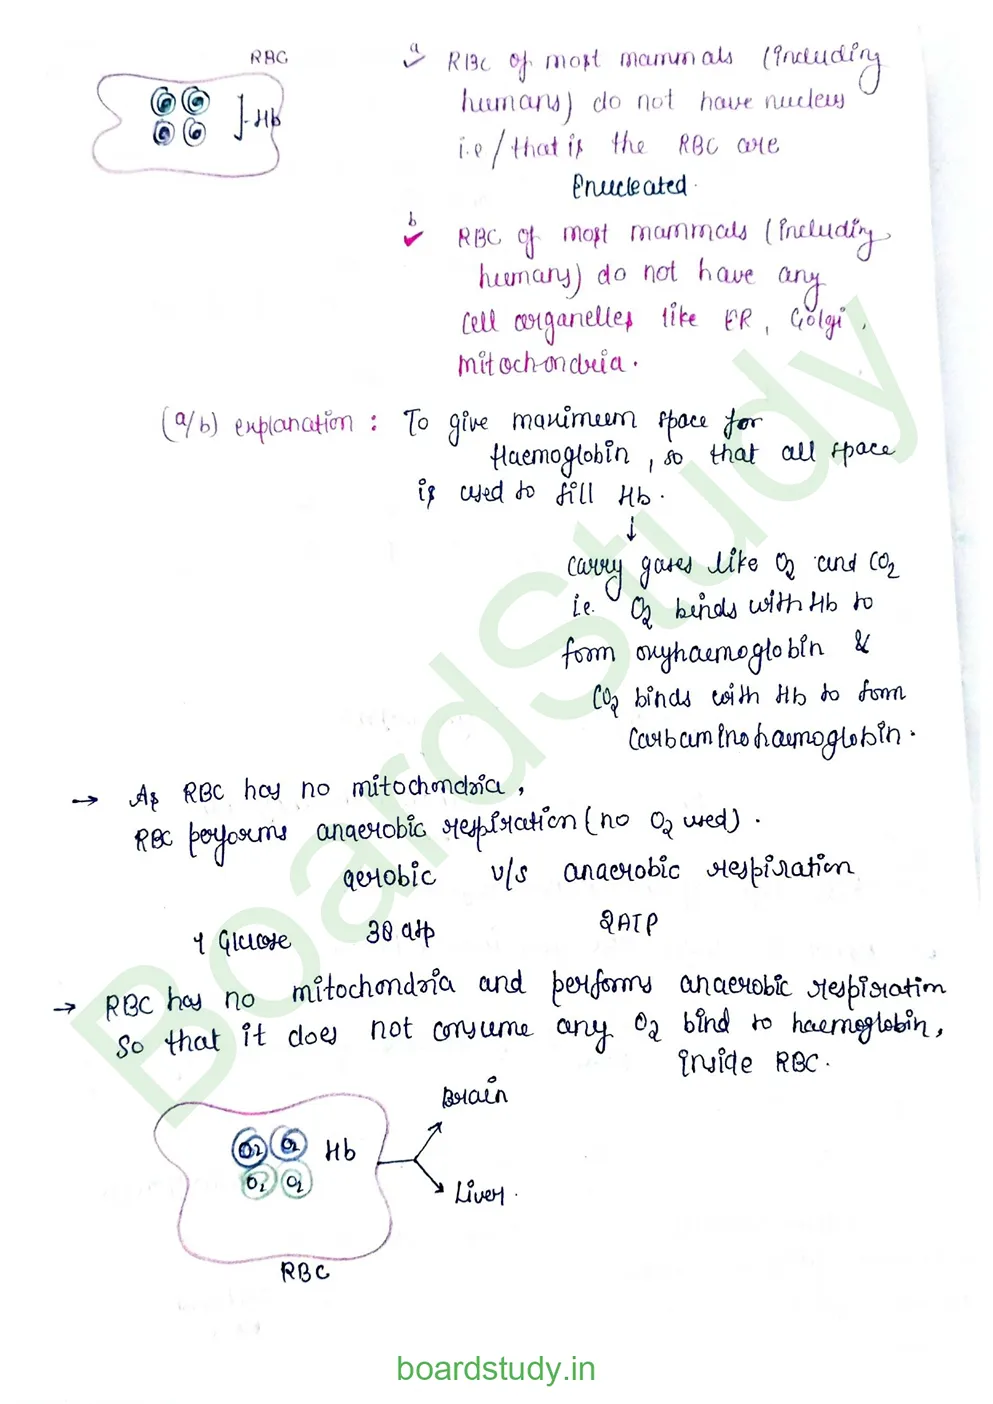 RBC
Hb
a RBC of most mammals (including
humans) do not have nucleus
i.e / that is the RBC are
Enucleated.
b RBC of most mammals (including
humans) do not have any
cell organelles like ER, Golgi,
mitochondria.
(a/b) explanation : To give maximum space for
Haemoglobin, so that all space
is used to fill Hb.
↓
carry gases like O2 and CO2
i.e. O2 binds with Hb to
form oxyhaemoglobin &
CO2 binds with Hb to form
Carbaminohaemoglobin.
→ As RBC has no mitochondria,
RBC performs anaerobic respiration (no O2 used).
aerobic v/s anaerobic respiration
1 Glucose 38 atp 2ATP
→ RBC has no mitochondria and performs anaerobic respiration
So that it does not consume any O2 bind to haemoglobin,
inside RBC.
Brain
O2 O2 Hb
O2 O2
Liver.
RBC
BoardStudy
boardstudy.in